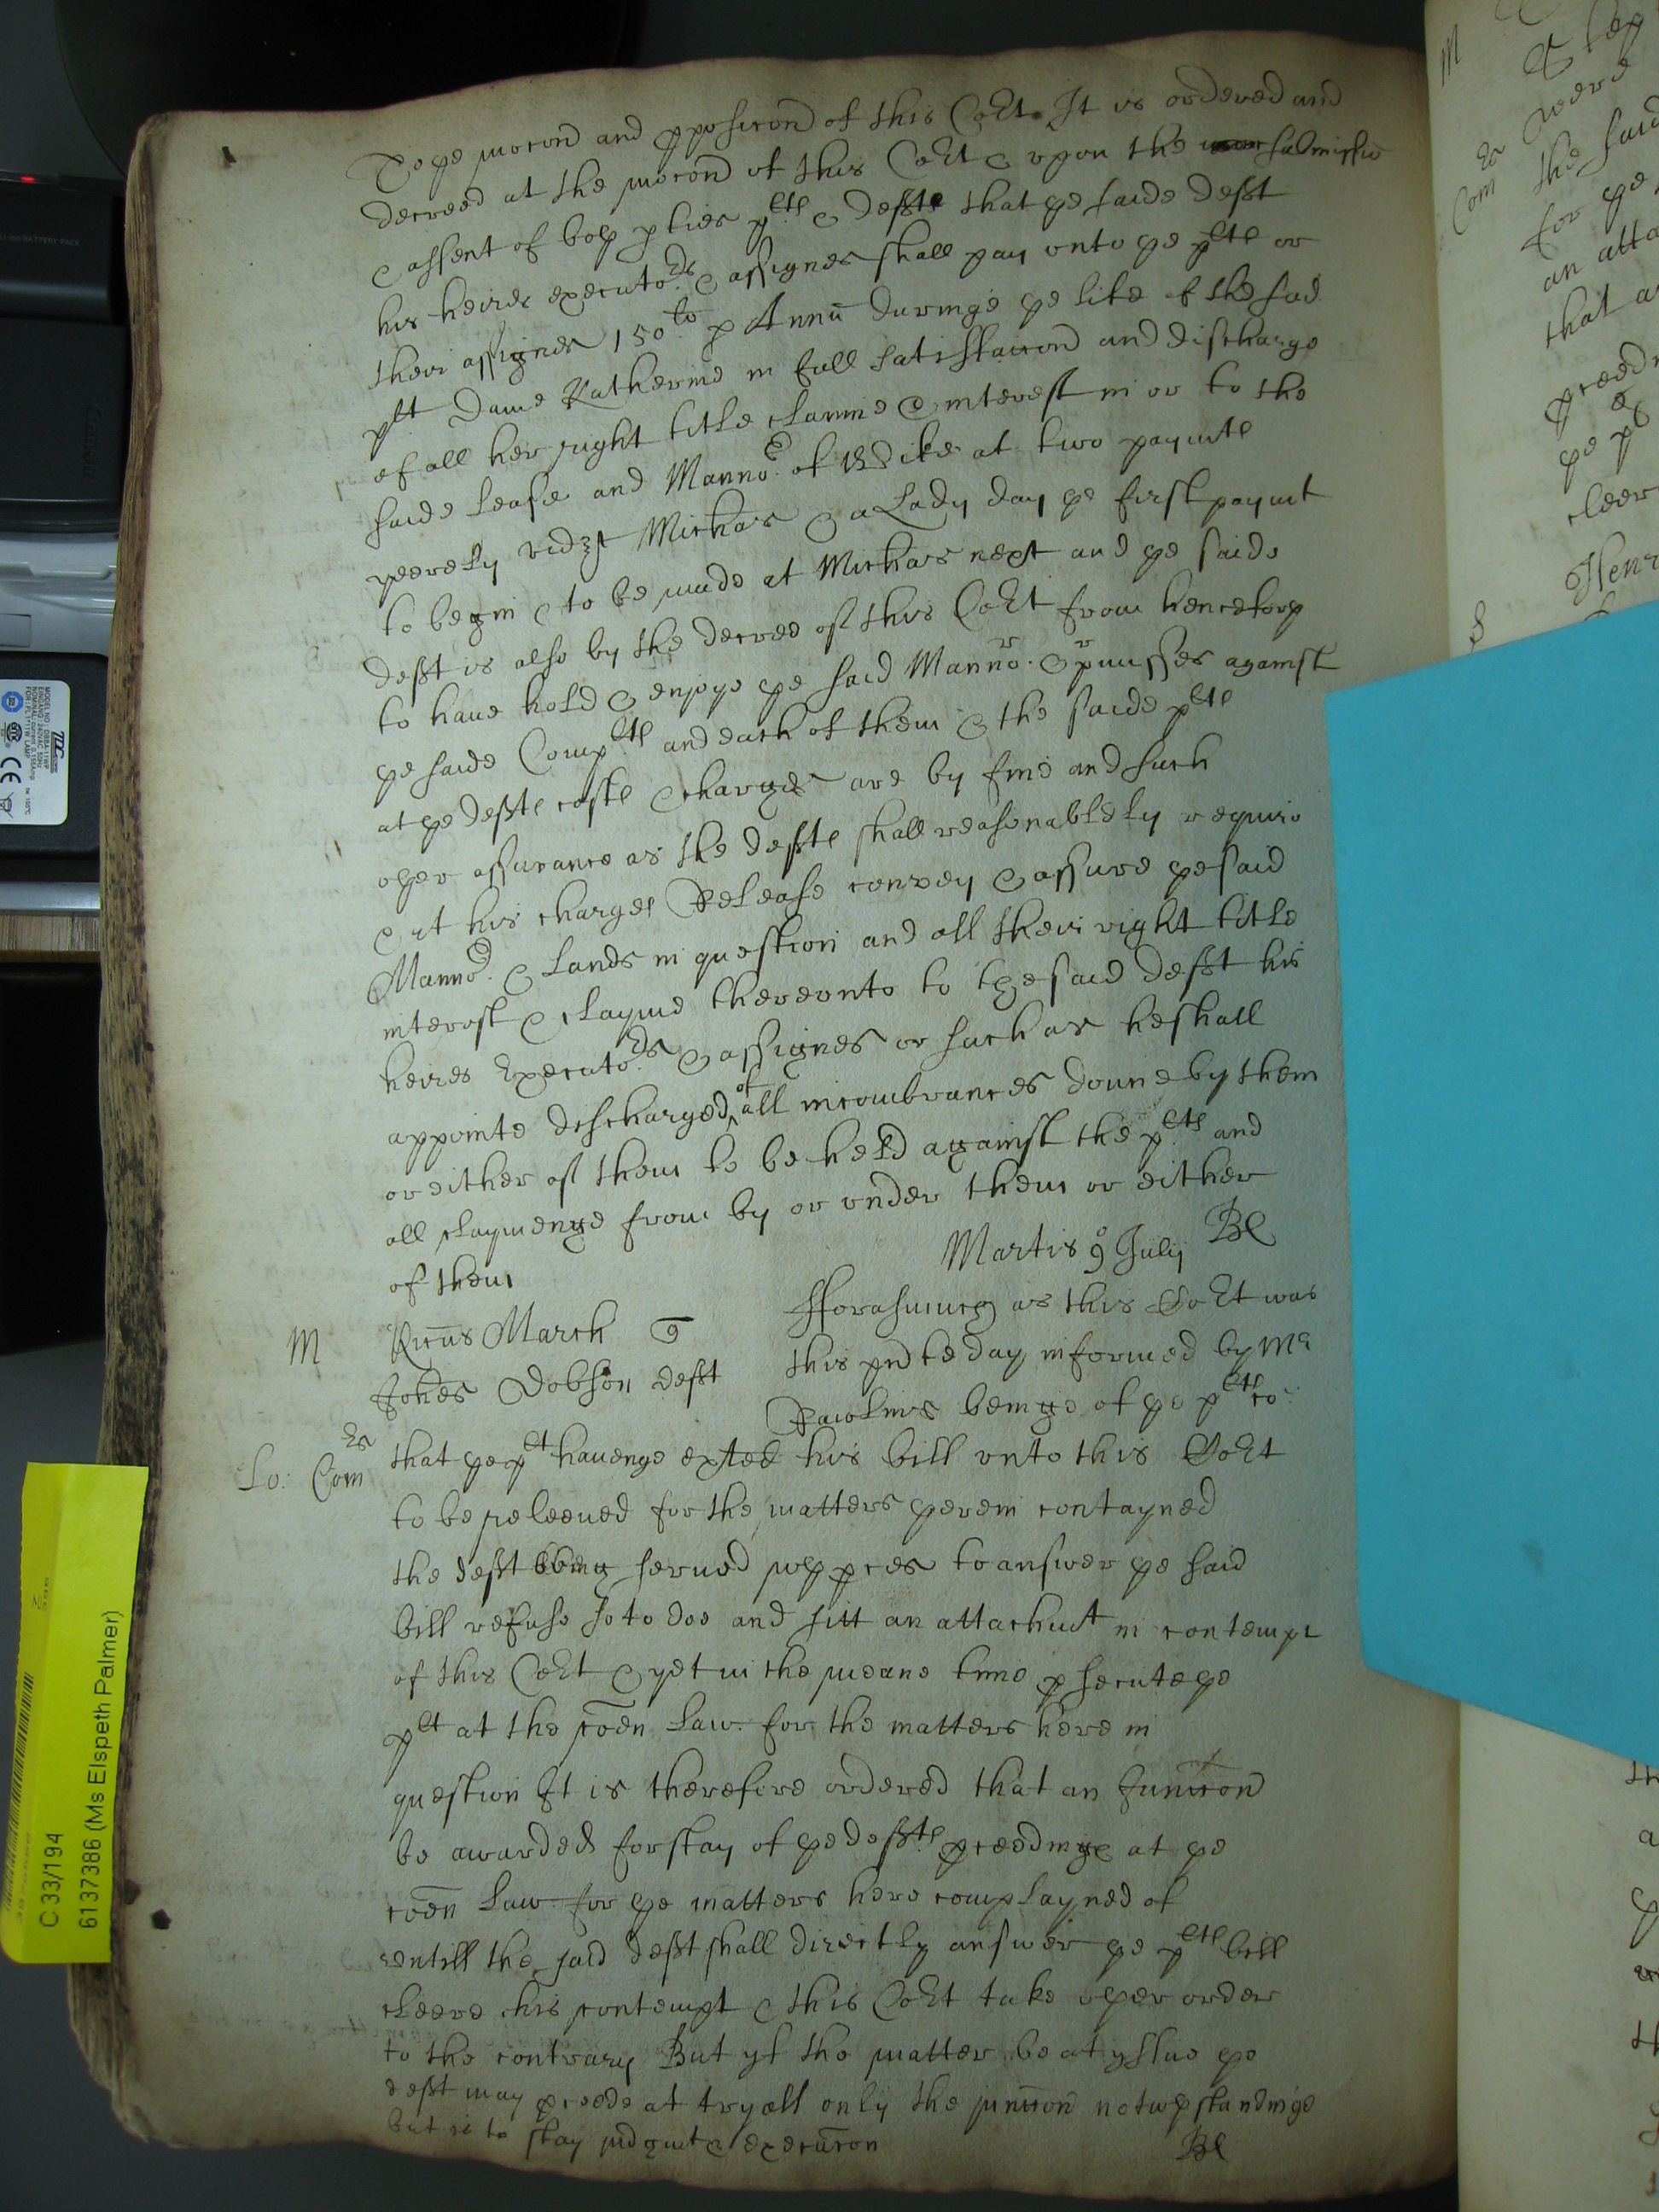 To ye mocon and pposicon of this Co:rt It is ordered and
decreed at the mocon of this Co:rt & vpon the submissio
& assent of boy pties plts & defts that ye saide deft
his heires executors & assignes shall pay vnto ye plts or
their assignes 150li p Annu duringe ye life of the said
plt Dame Katherine in full satisfaccon and discharge
of all her right title clayme & interest in or to the
saide lease and Mannor of at two paymts
yeerely vidzt Michas & a Lady day ye first paymt
to begin & to be made at Michas next and ye saide
deft is also by the decree of this Co:rt from hencefory
to haue hold & enjoye ye said Mannor & pmisses against
ye saide Complts and each of them & the saide plts
at ye defts costs & charges are by fine and such
oyer assurance as the defts shall reasonablely require
& at his charges Release convey & assure ye said
Mannor & lands in question and all their right title
interest & clayme therevnto to tye said deft his
heires Executors & assignes or such as he shall
appointe discharged of all incombrances donne by them
or either of them to be held against the plts and
all claymenge from by or vnder them or either
of them
Martis 9o Julij Bl
M Ricus March q
Johes Dobson deft
fforasmucy as this Co:rt was
this pnte day informed by Mr
Rawlins beinge of ye plts co:
Lo: Com
that ye plt hauenge exted his bill vnto this Co:rt
to be releeued for the matters yerein contayned
the deft being serued wy pces to answer ye said
bill refuse so to doe and sitt an attachmt in contempt
of this Co:rt & yet in the meane time psecute ye
plt at the coen law for the matters here in
question It is therefore ordered that an Iunccon
be awarded for stay of ye defts pceedings at ye
coen law for ye matters here complayned of
vntill the said deft shall directly answer ye plts bill
cleere his contempt & this Co:rt take oyer order
to the contrary But yf the matter be at yssue ye
deft may pceede at tryall only the iunccon notwystandinge
but is to stay iudgmt & execucon Bl
C 33/194
6137386 (Ms Elspeth Palmer)
Canon
BATTERY PACK
Henr